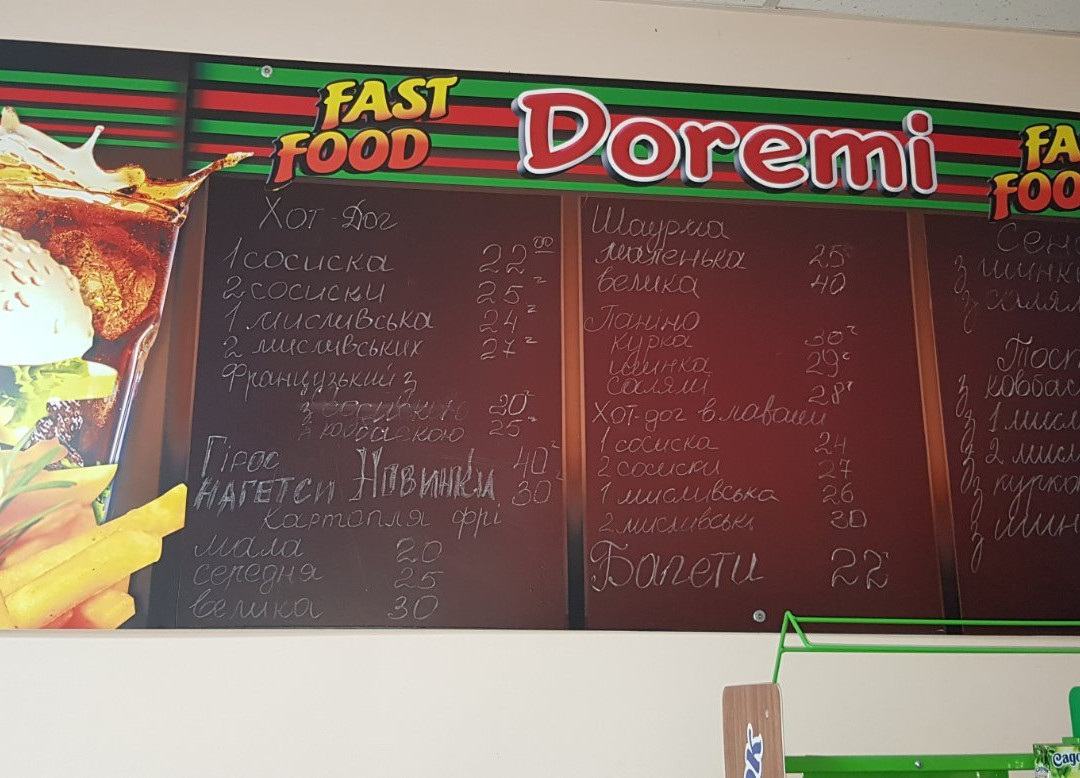 FAST FOOD
Doremi
FA
FOO
Хот-Дог
1 сосиска 22 00
2 сосиски 25
1 мисливська 24
2 мисливських 27
Французький з
20
з ковбаскою 25
Гірос 40
НАГЕТСИ НОВИНКИ 30
Картопля фрі
мала 20
середня 25
велика 30
Шаурма
маленька 25
велика 40
Паніно
курка 30
шинка 29
салямі 28
Хот-дог в лаваші
1 сосиска 24
2 сосиски 27
1 мисливська 26
2 мисливські 30
Багети 22
Сен
з шинк
з салям
Тост
з ковбас
з 1 мисл
з 2 мисл
з курко
з шин
Садо